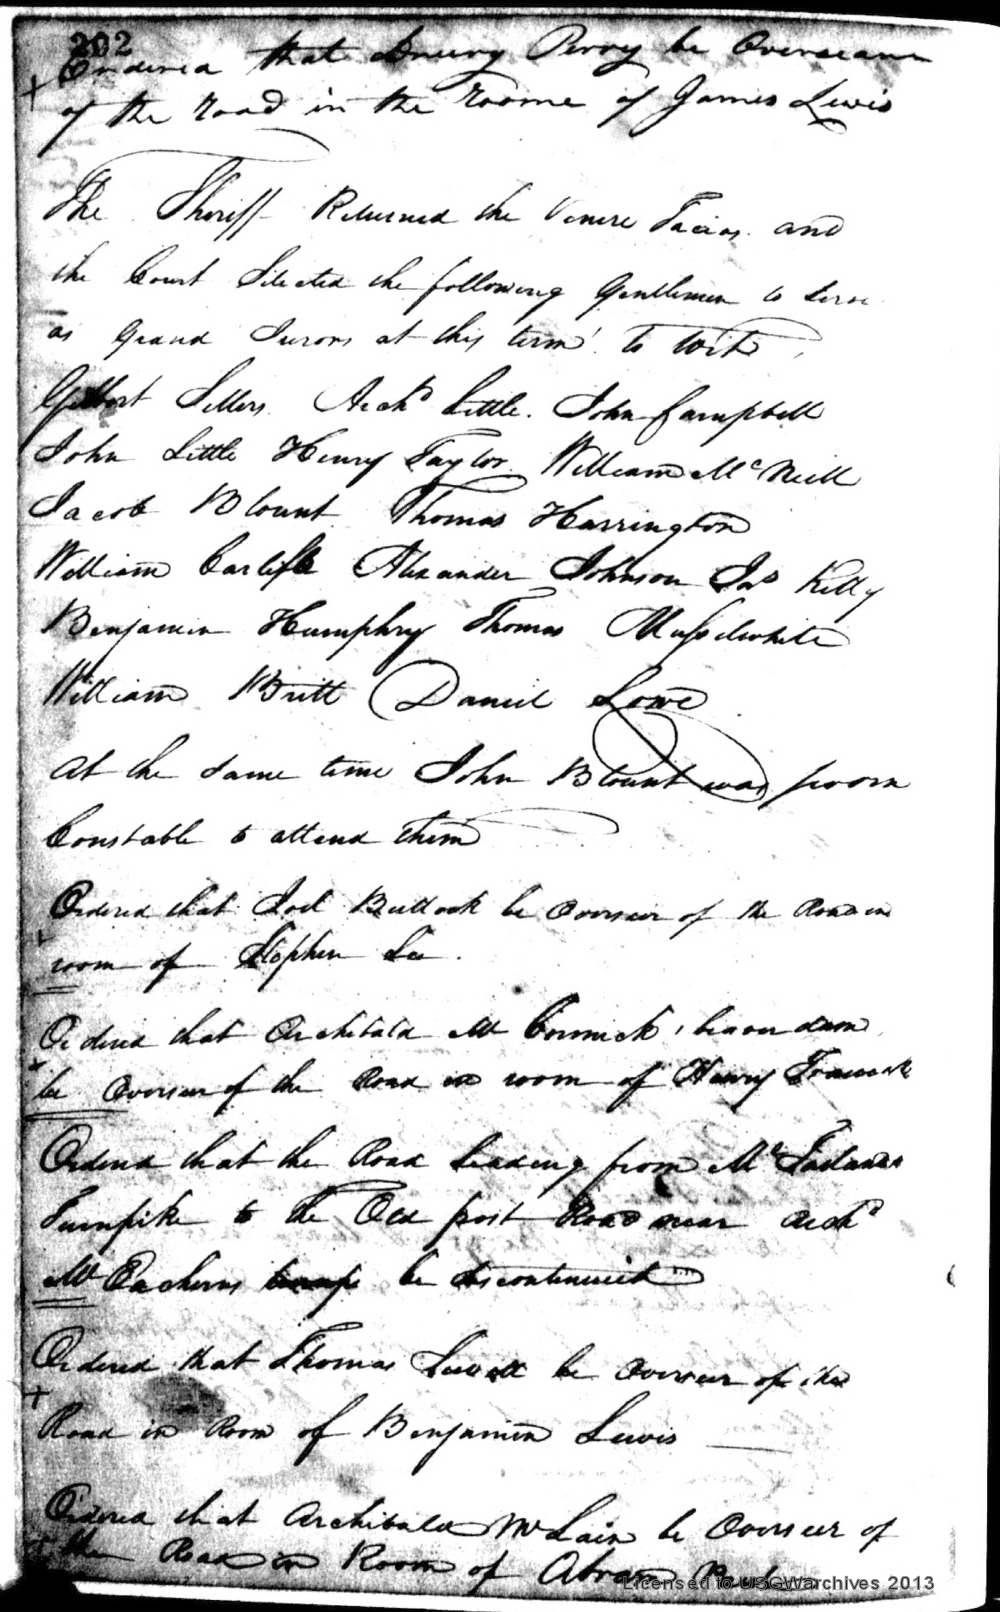 202
Ordered that Drury Perry be Overseear
of the road in the roome of James Lewis
The Sheriff Returned the Venire Facias and
the Court Selected the following Gentlemen to serve
as Grand Jurors at this term to Wit
Gilbert Sellers Archd Little. John Campbell
John Little Henry Taylor William McNeill
Jacob Blount Thomas Harrington
William Carlisle Alexander Johnson Jno Kelly
Benjamin Humphry Thomas Musselwhite
William Britt Daniel Lowe
at the same time John Blount was sworn
Constable to attend them
Ordered that Joel Bullock be Overseer of the Road in
room of Stephen Lee.
Ordered that Archibald McCormick, beaver dam
be Overseer of the Road in room of Henry
Ordered that the Road leading from Mc
Turnpike to the Old post Road near Archd
McEacherns be discontinued
Ordered that Thomas be Overseer of the
Road in Room of Benjamin Lewis
Ordered that Archibald McLain be Overseer of
the Road in Room of Abram
Licensed to USGWarchives 2013